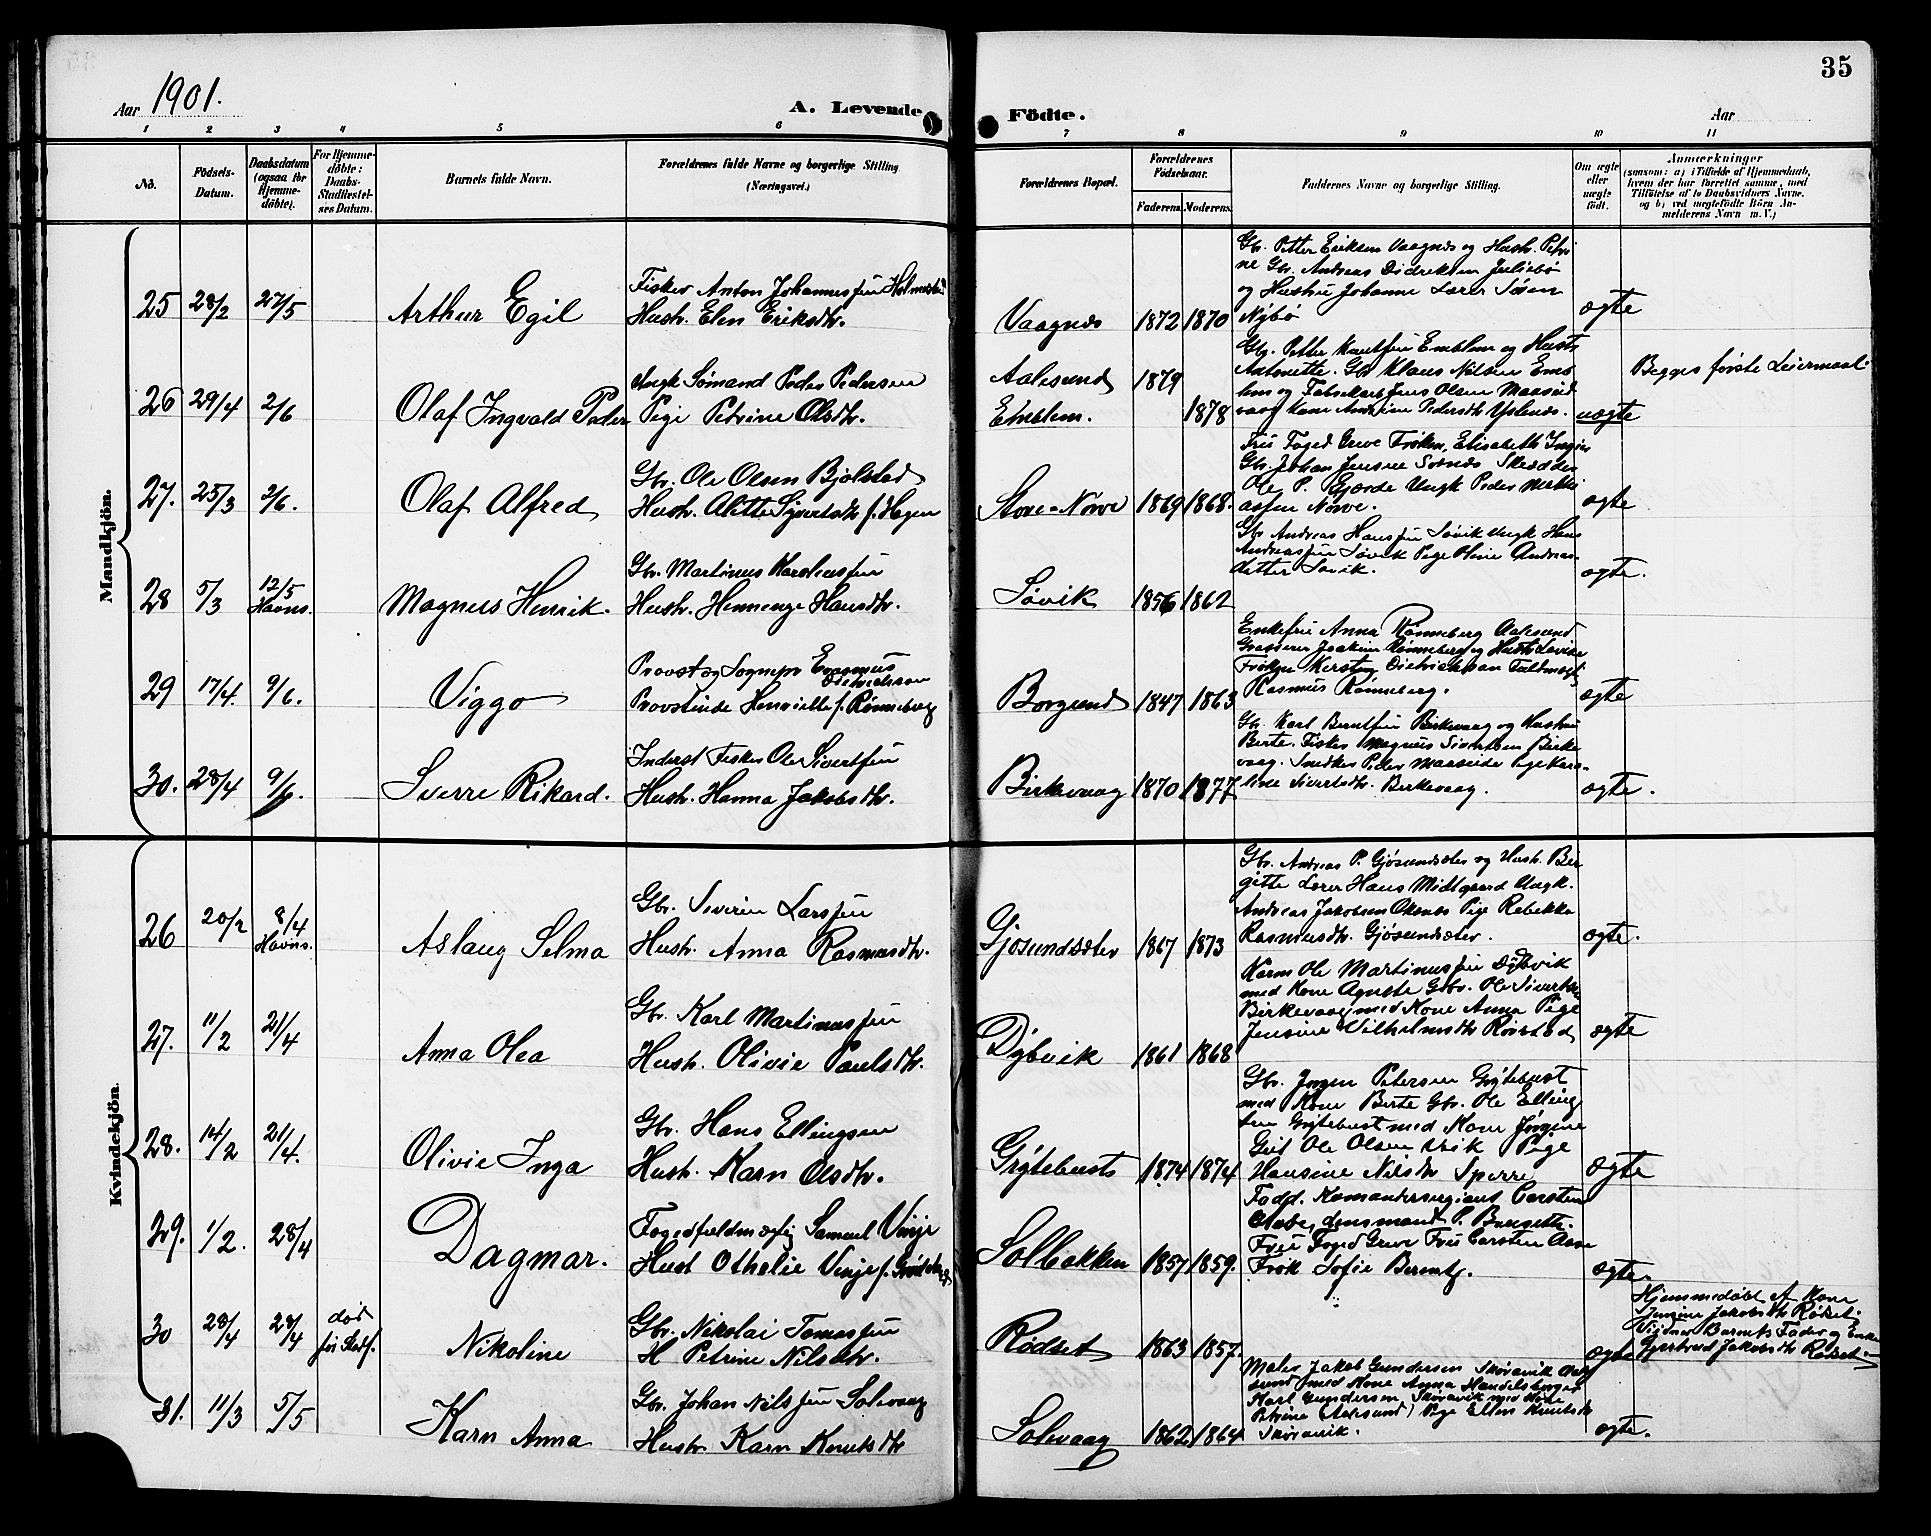 35
Aar 1901.
A. Levende
Födte.
Aar
1 2 3 4 5 6 7 8 9 10 11
No.
Födsels-
Datum.
Daabsdatum
(ogsaa for
Hjemme-
døbte).
For Hjemme-
døbte:
Daabs-
Stadfæstel-
ses Datum.
Barnets fulde Navn.
Forældrenes fulde Navne og borgerlige Stilling
(Næringsvei.)
Forældrenes Bopæl.
Forældrenes
Födselsaar.
Faderens. Moderens.
Faddernes Navne og borgerlige Stilling.
Om ægte
eller
uægte
födt.
Anmærkninger
(saasom: a) i Tilfælde af Hjemmedaab,
hvem der har forrettet samme, med
Tilföielse af to Daabsvidners Navne.
og b) ved uægtefödte Börn An-
melderens Navn m. V.)
Mandkjön.
25 28/2 27/5 Arthur Egil
Fisker Anton Johannessen
Hustr. Elen Eriksdtr.
Vaagnes 1872 1870
Gbr. Petter Eriksen Vaagnes og Hustr. Petri
ne Gbr. Andreas Didriksen Juliebø
og Hustru Johanne Lærer Søren
Nybø
ægte
26 29/4 2/6 Olaf Ingvald Peder
Ungk Sømand Peder Pedersen
Pige Petrine Olsdtr.
Aalesund 1879
Emblem. 1878
Gbr. Petter Knutsen Emblem og Hustr
Antonette. Gbr Klaus Nilsen Emb
lem og Fabrikarb Jens Olsen Maaseid
vaag Kone Andrine Pedersdtr
uægte
Begges første Leiermaal.
27. 25/3 2/6. Olaf Alfred
Gbr. Ole Olsen Bjølstad
Hustr. Alette Syvertsdtr f. Hagen
Store-Nørve 1869 1868.
Fru Foged Greve Frøken Elisabeth
Gbr. Johan Jensen Skrædder
Ole P. Gjørde Ungk Peder
Nørve.
ægte
28 5/3 12/5
Havns.
Magnus Henrik.
Gbr. Martinus Karoliussen
Hustr. Hansdtr.
Søvik 1856 1862
Gbr Andreas Hansen Søvik Ungk Hans
Andreassen Søvik Pige Oline Andreas
datter Søvik.
ægte.
29 17/4. 9/6. Viggo
Provst og Sognepr Erasmus
Dietrichson
Provstinde Henriette f. Rønneberg
Borgund 1847 1863
Enkefru Anna Rønneberg Aalesund
Grosserer Joakim Rønneberg og Hustr Lovise
Frøken Kersten Dietrichson Fuldmægt.
Rasmus Rønneberg.
ægte
30. 28/4 9/6. Sverre Rikard.
Inderst Fisker Ole Sivertsen
Hustr. Hanna Jakobsdtr.
Birkevaag 1870 1877
Gbr. Karl Berntsen Birkevaag og Hustru
Berte. Fisker Magnus Sivertsen Birke
vaag. Snedker Peder Maaseide Pige Karo
line Sivertsdtr. Birkevaag.
ægte.
Kvindekjön.
26 20/2 8/4
Havns.
Aslaug Selma
Gbr. Severin Larssen
Hustr. Anna Rasmusdtr.
Gjøsundsæter 1867 1873
Gbr. Andreas P. Gjøsundsæter og Hustr. Bir
gitte Lærer Hans Midtgaard Ungk.
Andreas Jakobsen Oksnes Pige Rebekka
Rasmusdtr. Gjøsundsæter.
ægte.
27. 11/2 21/4 Anna Olea
Gbr. Karl Martinussen
Hustr. Olivie Paulsdtr.
Dybvik 1861 1868
Karm Ole Martinussen Dybvik
med Kone Aguste Gbr. Ole Sivertsen
Birkevaag med Kone Anna Pige
Jensine Vilhelmsdtr Rørstad
ægte
28. 14/2 21/4. Olivie Inga
Gbr. Hans Ellingsen
Hustr. Karn Olsdtr.
Grytebust 1874 1874
Gbr. Jørgen Petersen Grytebust
med Kone Berte Gbr. Ole Elling
sen Grytebust med Kone Jørgine
Gut Ole Olsen Pige
Hansine Nilsdtr Sperre
ægte
29. 1/2. 28/4 Dagmar.
Fogedfuldmægtig Samuel Vinje
Hust Othelie Vinje f.
Solbakken 1857 1859.
Fadd. Komandersergiant Carsten
Aase, Lensmand P.
Fru Foged Greve Fru Carsten Aase
Frøk Sofie Berentz.
ægte.
30 28/4 28/4 død
før Stadf.
Nikoline
Gbr. Nikolai Tomassen
H Petrine Nilsdtr.
Rødset 1863 1857.
ægte
Hjemmedøbt af Kone
Jensine Jakobsdtr Rødset.
Vidner Barnets Fader og Enke
Gjertrud Jakobsdtr Rødset.
31. 11/3 5/5 Karn Anna
Gbr. Johan Nilssen Solevaag
Hustr. Karn Knutsdtr
Solevaag 1862 1864
Maler Jakob Gundersen Skoravik Aale
sund med Kone Anna Handelsborger
Karl Gundersen Skoravik med Kone
Petrine (Aalesund) Pige Ellen Knutsdtr
Skoravik.
ægte.